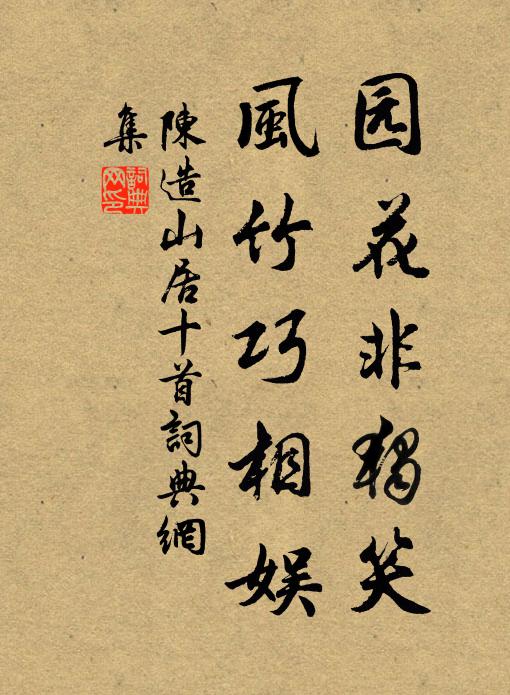 园花非独笑
風竹巧相娱
陳造山居十首詞典網
集
詞典網印